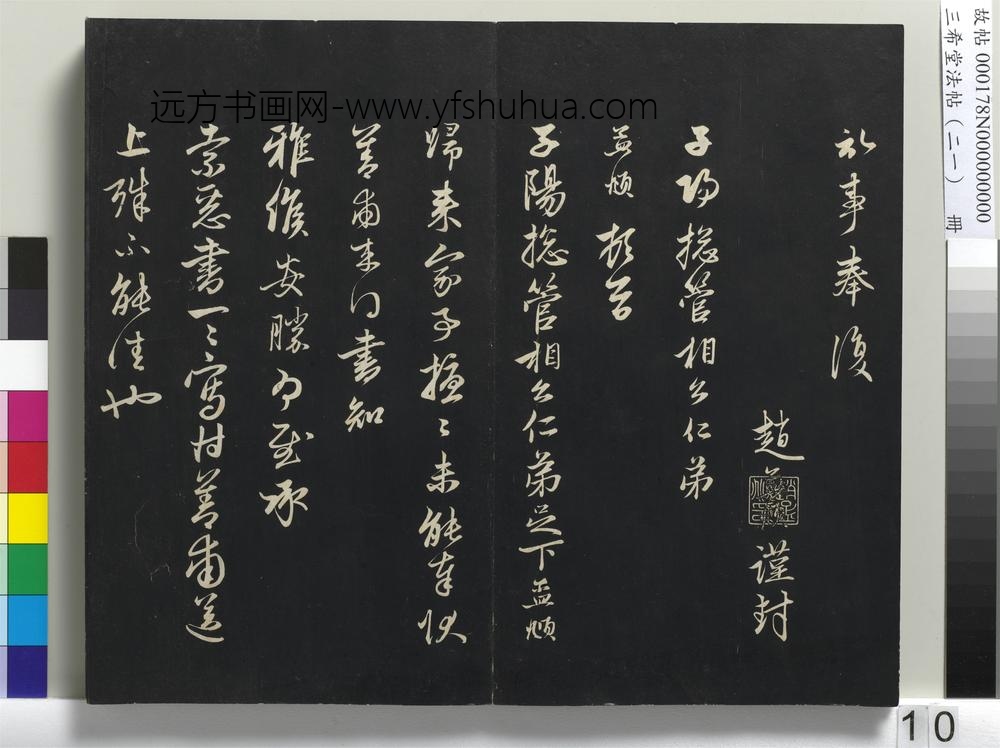 礼事奉復
趙 謹封
子陽總管相公仁弟
孟頫 頓首
子陽總管相公仁弟足下孟頫
歸來家事擾〻未能奉狀
善甫來得書知
雅候安勝為慰承
索惡書一〻寫付善甫送
上殊不能佳也
远方书画网-www.yfshuhua.com
故帖 000178N000000000
三希堂法帖(二一) 冊
10